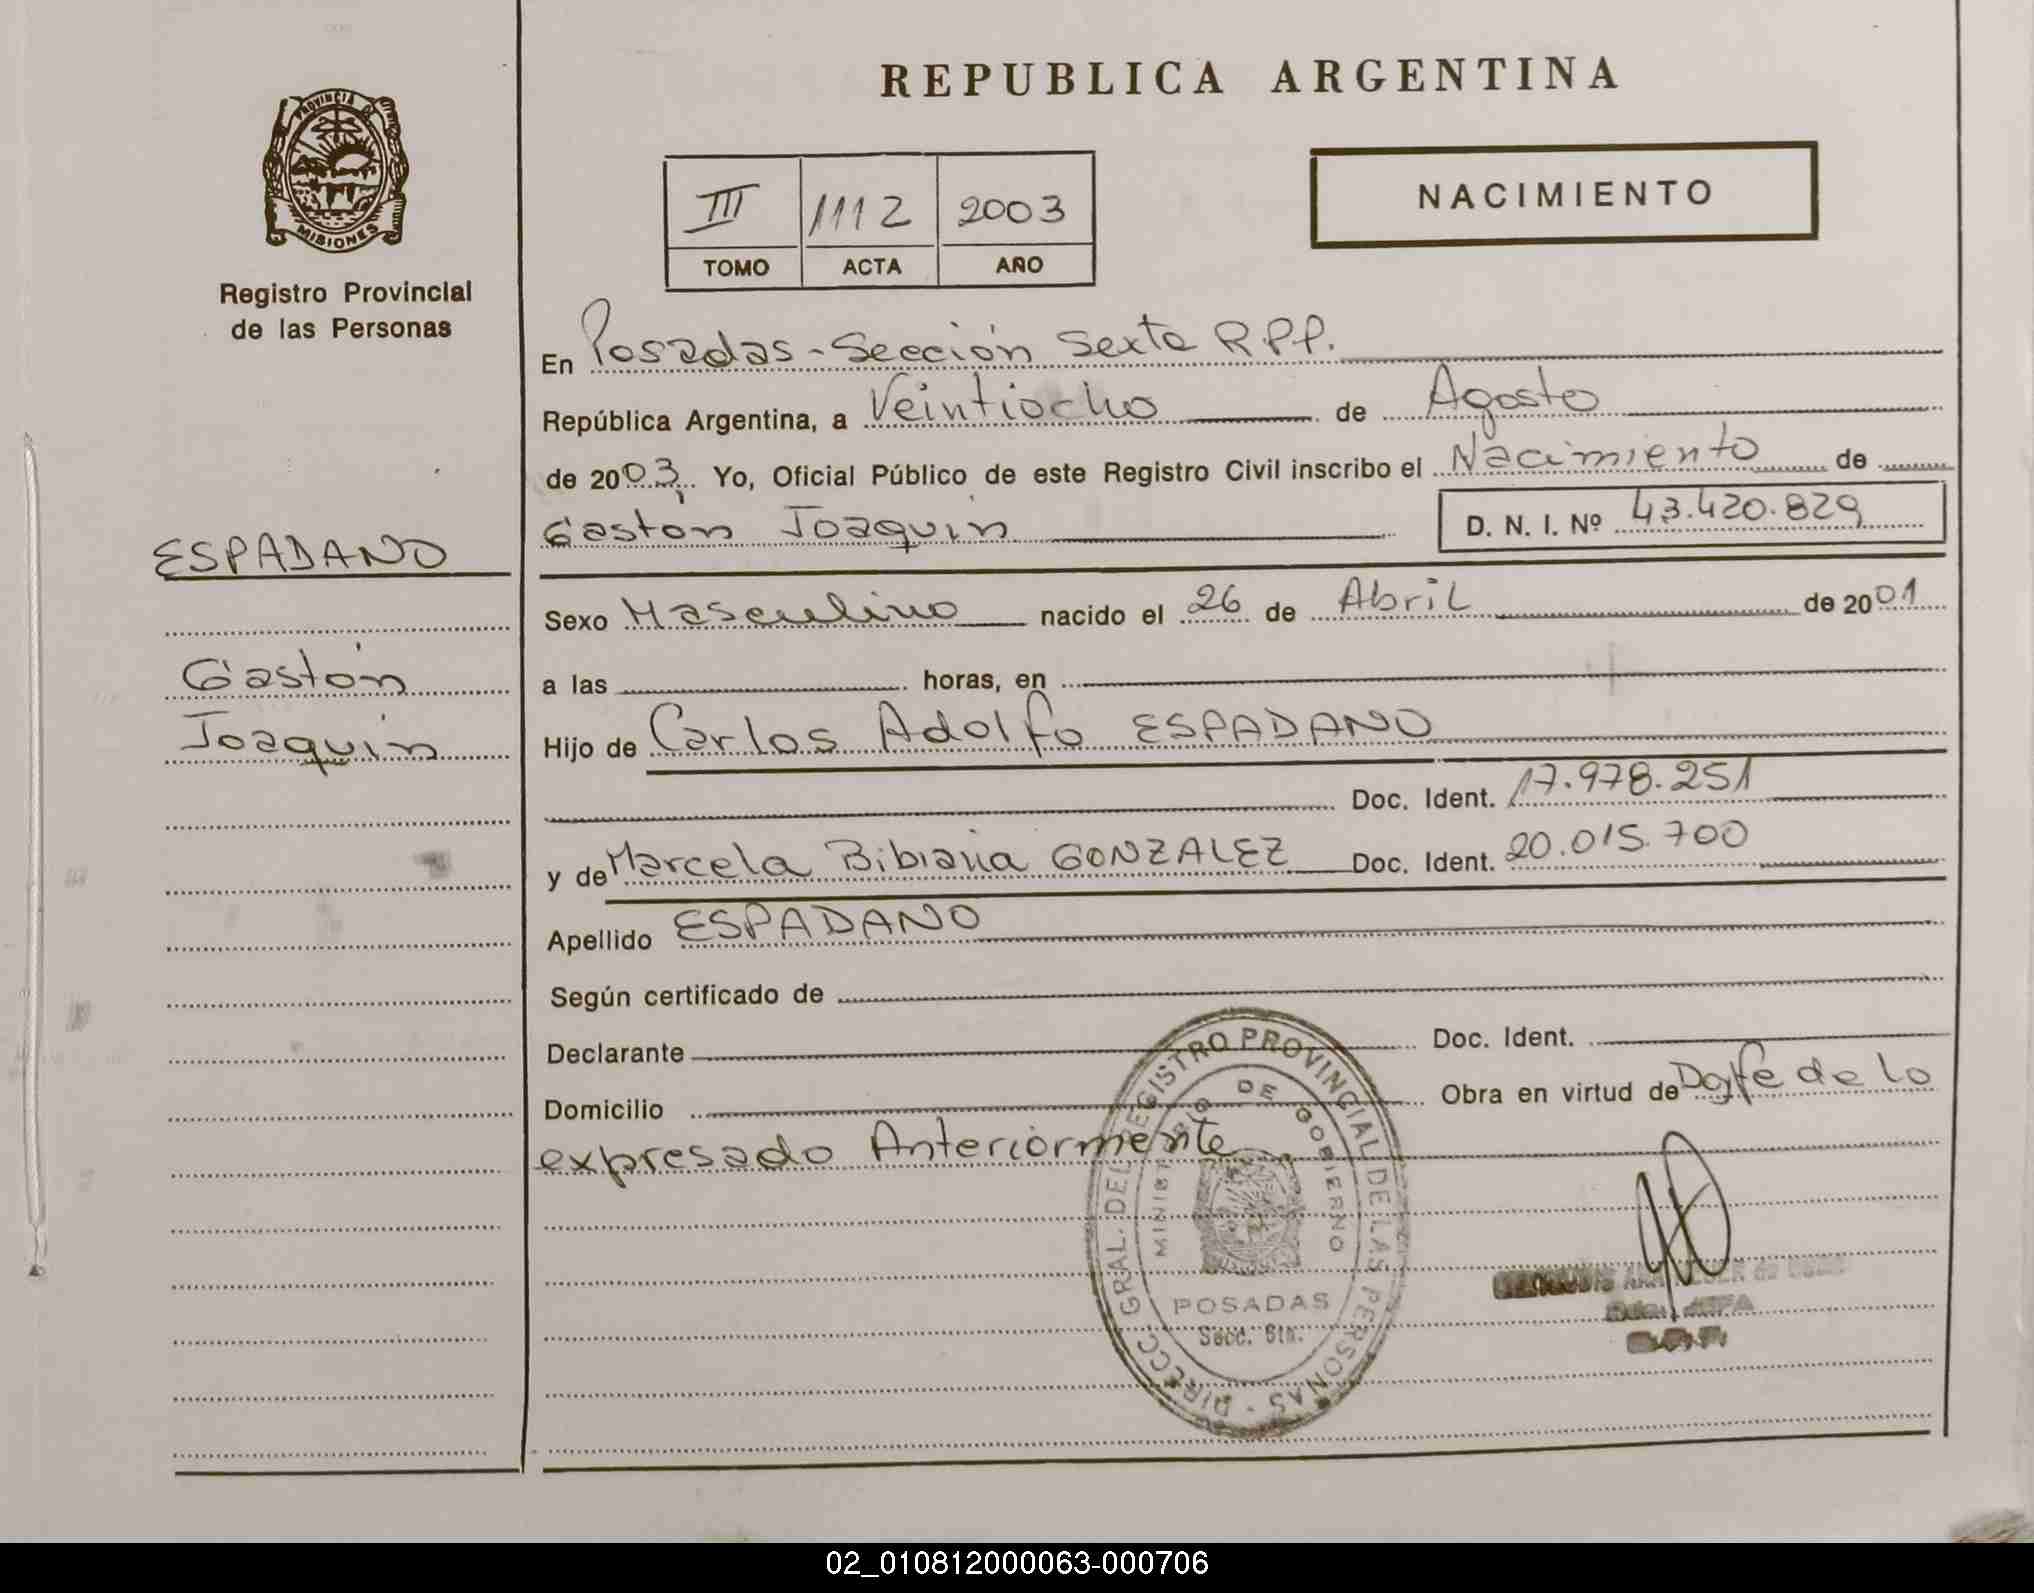 REPUBLICA ARGENTINA
PROVINCIA DE
MISIONES
Registro Provincial
de las Personas
NACIMIENTO
III 1112 2003
TOMO ACTA AÑO
En Posadas-Sección Sexta R.P.P.
República Argentina, a Veintiocho de Agosto
de 2003. Yo, Oficial Público de este Registro Civil inscribo el Nacimiento de
Gastón Joaquin D. N. I. Nº 43.420.829
ESPADANO
Gastón
Joaquin
Sexo Masculino nacido el 26 de Abril de 2001
a las horas, en
Hijo de Carlos Adolfo ESPADANO
Doc. Ident. 17.978.251
y de Marcela Bibiana GONZALEZ Doc. Ident. 20.015.700
Apellido ESPADANO
Según certificado de
Declarante Doc. Ident.
Domicilio Obra en virtud de Doy fe de lo
expresado Anteriormente
DIRECC. GRAL. DEL REGISTRO PROVINCIAL DE LAS PERSONAS -
MINISTERIO DE GOBIERNO
POSADAS
Secc. 6ta.
02_010812000063-000706